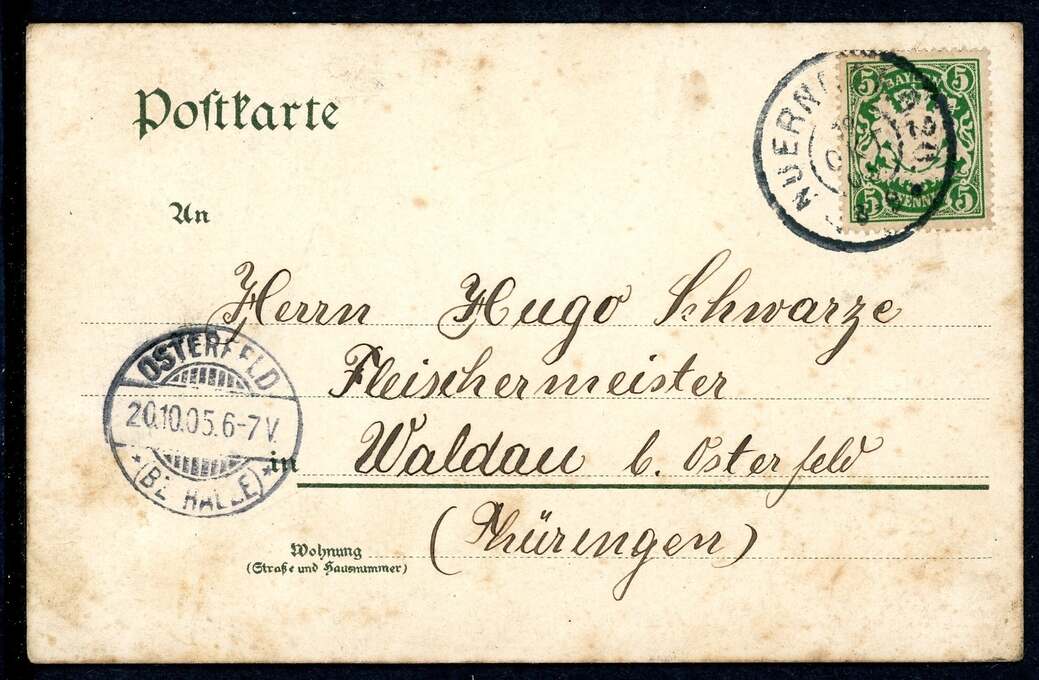 Postkarte
5 BAYERN 5
5 PFENNIG 5
An
Herrn Hugo Schwarze
OSTERFELD
20.10.05.6-7V.
(BZ. HALLE)
Fleischermeister
in Waldau b. Osterfeld
(Thüringen)
Wohnung
(Straße und Hausnummer)